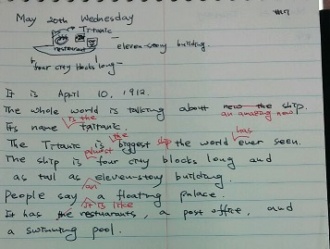 May 20th Wednesday
Titanic
restaurant
eleven-story building.
four city blocks long
It is April 10, 1912.
The whole world is talking about new the ship.
an amazing new
Its name taitanic.
is the
The Titanic is biggest ship the world ever seen.
the
has
The ship is four city blocks long and
almost
as tall as eleven-story building.
an
People say a floating palace.
it is like
It has the restaurants, a post office, and
a swimming pool.